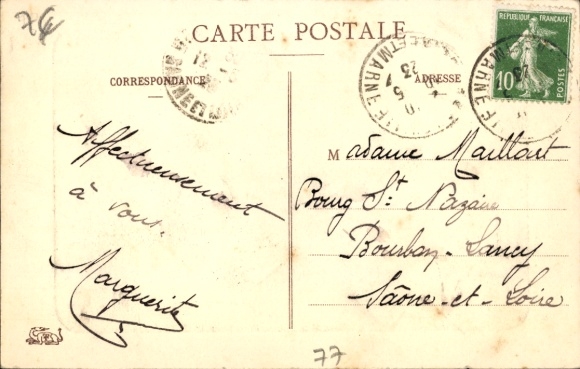 76
CARTE POSTALE
CORRESPONDANCE
ADRESSE
REPUBLIQUE FRANÇAISE
10
POSTES
ET MARNE
Affectueusement
à vous.
Marguerite
Madame Maillart
Bourg St Nazaire
Bourbon-Lancy
Saône-et-Loire
77